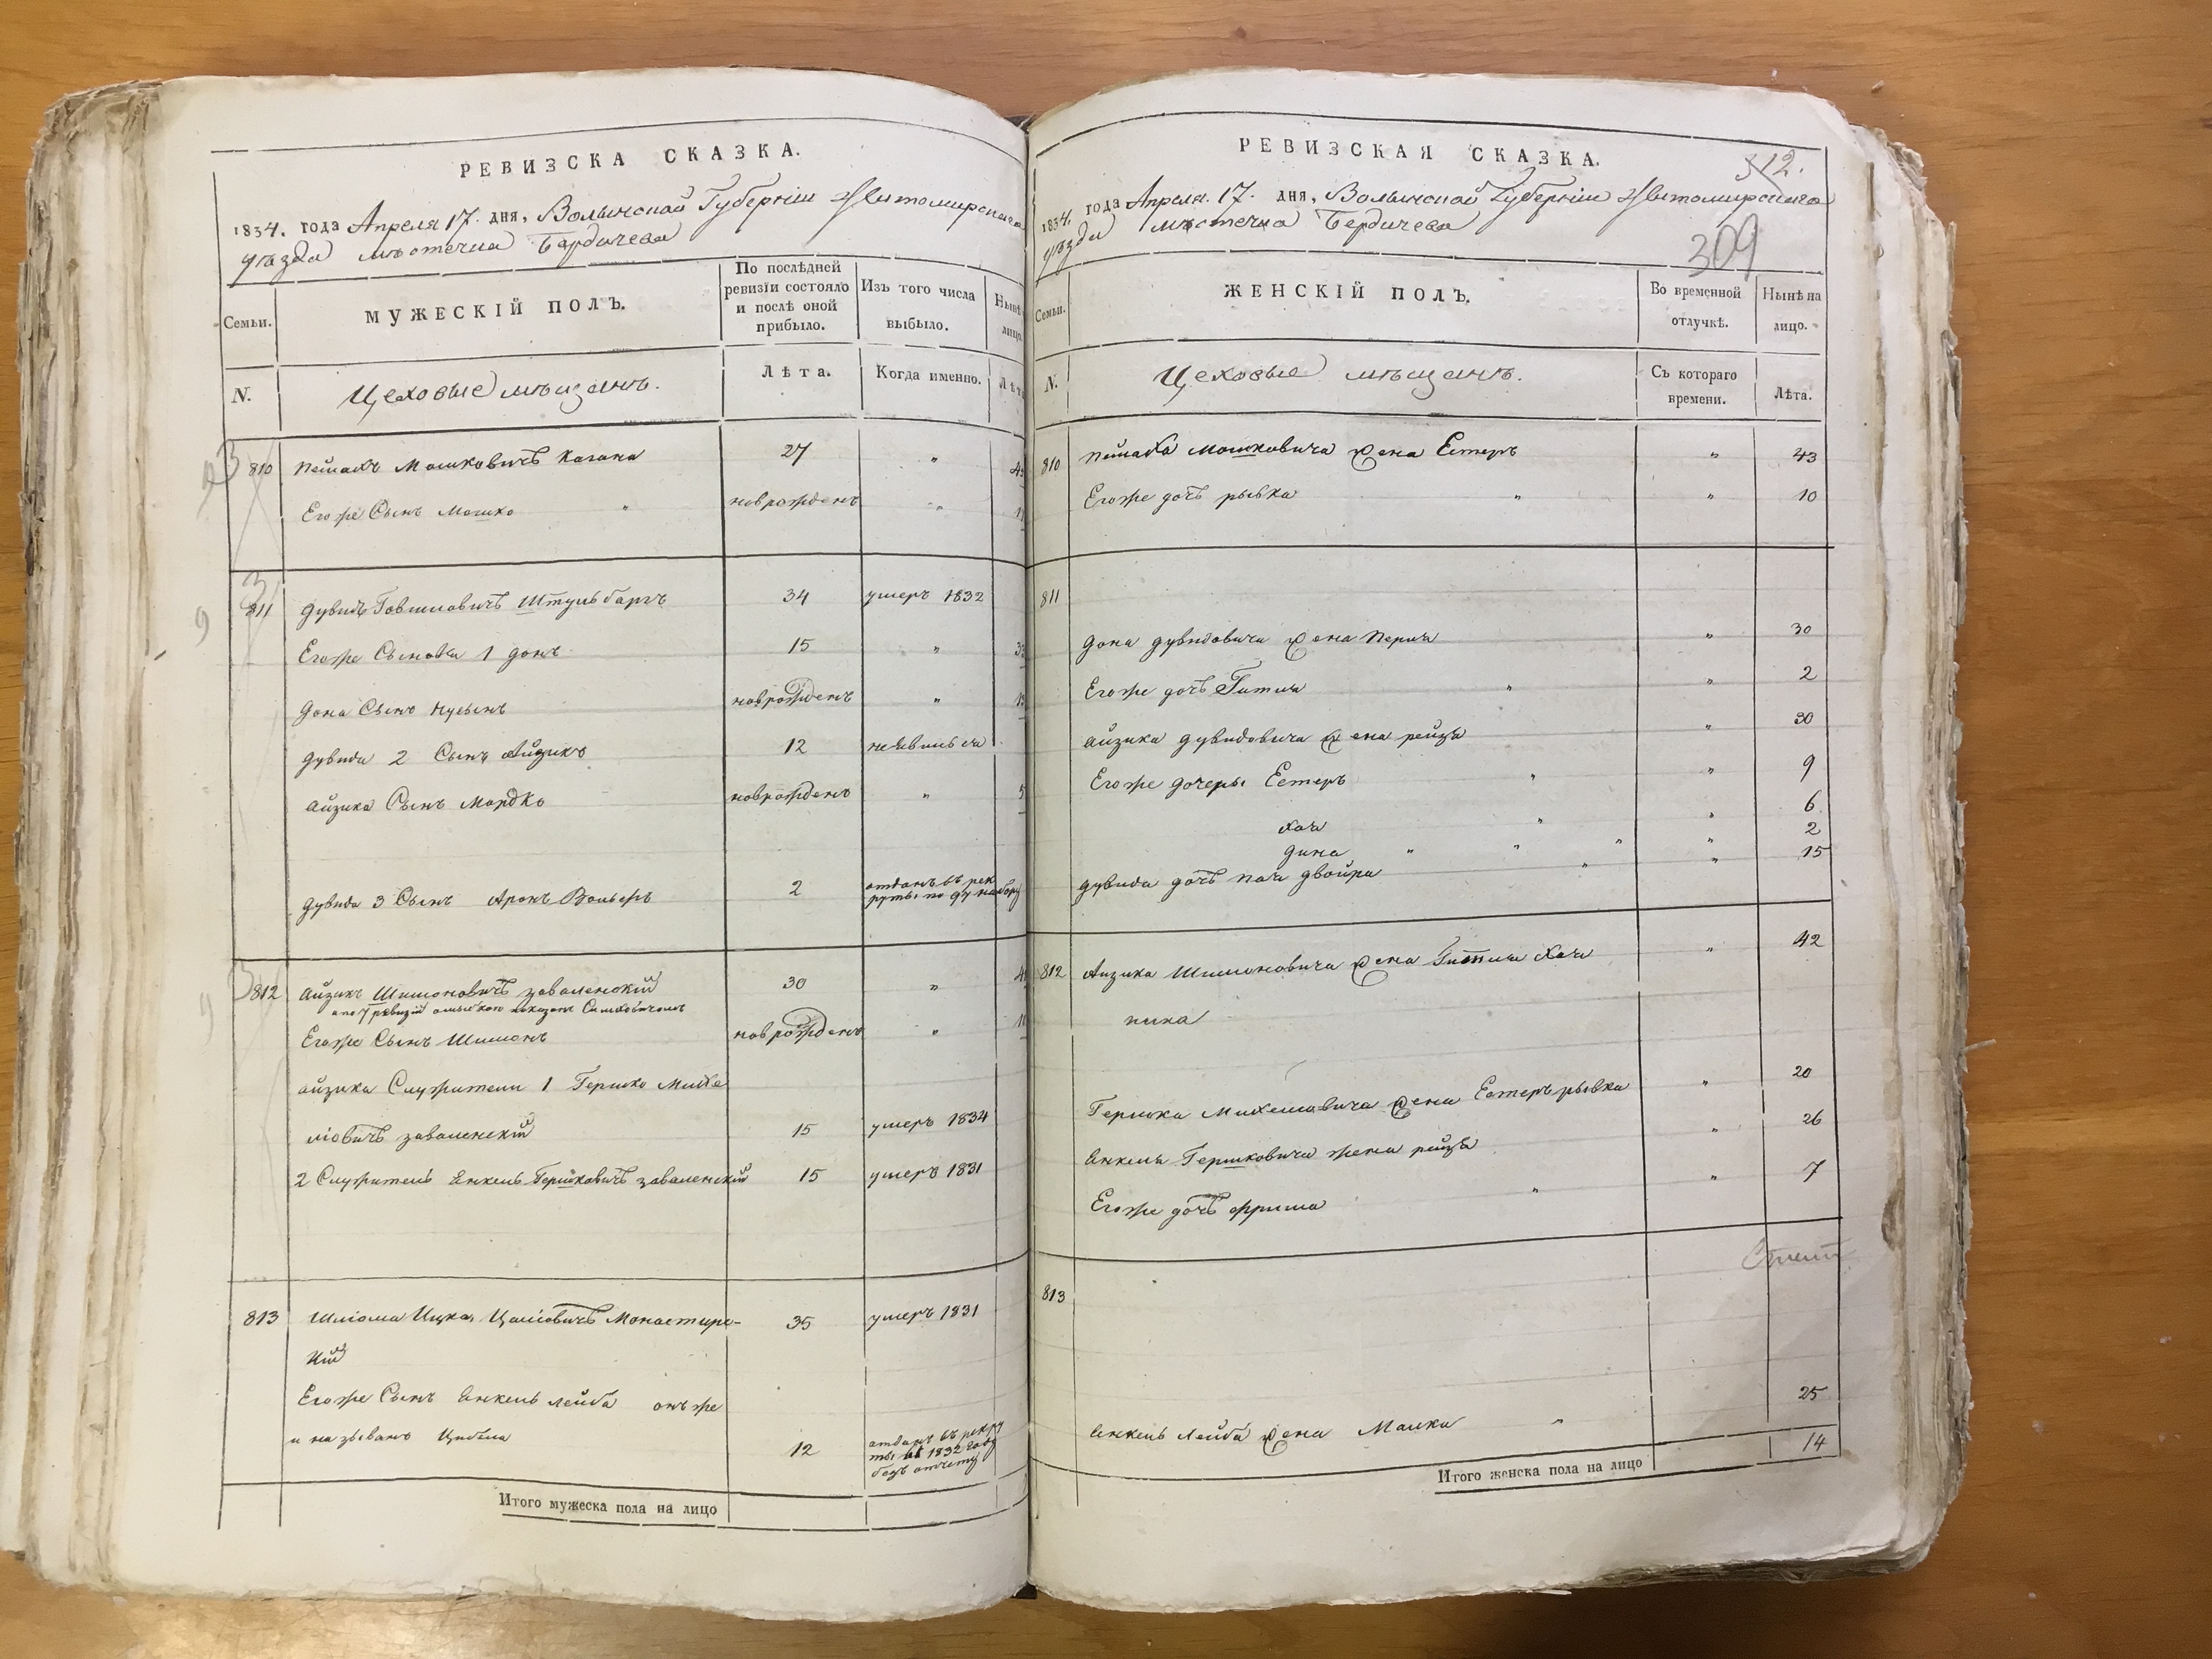 РЕВИЗСКА СКАЗКА.
1834. года Апреля 17. дня, Волынской Губерніи Житомирскаго
уѣзда мѣстечка Бердичева
Семьи.
МУЖЕСКІЙ ПОЛЪ.
По послѣдней
ревизіи состояло
и послѣ оной
прибыло.
Изъ того числа
выбыло.
Нынѣ
лицо.
N.
Цеховые мѣщанъ.
Лѣта.
Когда именно.
Лѣта
810 Пейсахъ Мошковичъ Кагана 27 "
Егоже Сынъ Мошко " новрожденъ "
811 Дувидъ Говшиовичъ Штульбаргъ 34 умеръ 1832
Егоже Сыновья 1 Донъ 15 "
Дона Сынъ Нусынъ новрожденъ "
Дувида 2 Сынъ Айзикъ 12 неявился
Айзика Сынъ Мордко новрожденъ " 5
Дувида 3 Сынъ Аронъ Вольфъ 2 отданъ въ рек
руты по 94 набору
812 Айзикъ Шимоновичъ Заваленскій 30 "
а по 7 ревизіи ошибкою показанъ Симховичомъ
Егоже Сынъ Шимонъ новрожденъ "
Айзика Служители 1 Гершко Михе
ліовичъ Заваленскій 15 умеръ 1834
2 Служитель Янкель Гершковичъ Заваленскій 15 умеръ 1831
813 Шліома Ицка Цаліовичъ Монастирс-
кій 35 умеръ 1831
Егоже Сынъ Янкель Лейба онъ же
и называнъ 12 отданъ въ рекру
ты въ 1832 году
безъ отчету
Итого мужеска пола на лицо
РЕВИЗСКАЯ СКАЗКА.
312.
1834. года Апреля. 17. дня, Волынской Губерніи Житомирскаго
уѣзда мѣстечка Бердичева
309
Семьи.
ЖЕНСКІЙ ПОЛЪ.
Во временной
отлучкѣ.
Нынѣ на
лицо.
N.
Цеховые мѣщанъ.
Съ котораго
времени.
Лѣта.
810 Пейсаха Мошковича жена Естеръ " 43
Егоже дочь Рывка " " 10
811
Дона Дувидовича жена Перля " 30
Егоже дочь Гитля " " 2
Айзика Дувидовича жена Рейза " 30
Егоже дочеры Естеръ " " 9
Хая " " 6
Дина " " " " 2
Дувида дочь Пая Двойра " " 15
812 Айзика Шимоновича жена Гитля Хая " 42
Гершка Михелиовича жена Естеръ Рывка " 20
Янкеля Гершковича жена Рейза " 26
Егоже дочь Фрима " " 7
813
Янкель Лейба жена Малка " 25
Итого женска пола на лицо 14